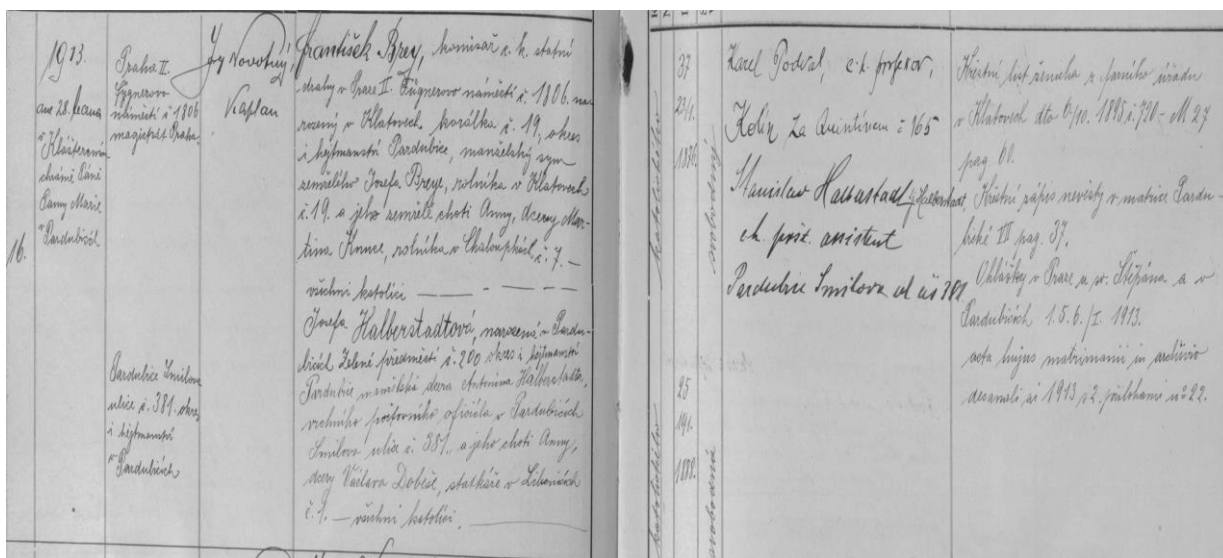 16.
1913.
dne 28. ledna
v Klášterním
chrámě Páně
Panny Marie
v Pardubicích
Praha II.
Fygnerovo
náměstí č 1806
magistrát Praha.
Pardubice Smilova
ulice č. 381. okres
i hejtmanství
v Pardubicích
Novotný,
Kaplan
František Brey, komisař c. k. státní
dráhy v Praze II. Fügnerovo náměstí č. 1806. na-
rozený v Klatovech č. 19, okres
i hejtmanství Pardubice, manželský syn
zemřelého Josefa Breye, rolníka v Klatovech
č. 19. a jeho zemřelé choti Anny, dcery Mar-
tina Kunce, rolníka v Chaloupkách č. 7. —
všichni katolíci — — — —
Josefa Halberstadtová, narozená v Pardu-
bicích Zelené předměstí č. 200 okres i hejtmanství
Pardubice manželská dcera Antonína Halberstadta,
vrchního poštovního oficiála v Pardubicích
Smilova ulice č. 381., a jeho choti Anny,
dcery Václava Dobeše, statkáře v Libanicích
č. 1. — všichni katolíci. —
katolického
37
23/1.
1876
svobodný
katolického
25
19/1.
1888.
svobodná
Karel Podval, c. k. profesor,
Kolín Za č 165
Stanislav Halberstadt
ck. pošt. assistent
Pardubice Smilova ul čís 381
Křestní list ženicha z farního úřadu
v Klatovech dto 6/10. 1895 č. 720 – M 27
pag. 60.
Křestní zápis nevěsty v matrice Pardu-
bické VII pag. 37.
Ohlášky v Praze u sv. Štěpána a v
Pardubicích 1. 5. 6. /I. 1913.
acta hujus matrimonii in archivio
decanali ai 1913 s 2. přílohami nº 22.